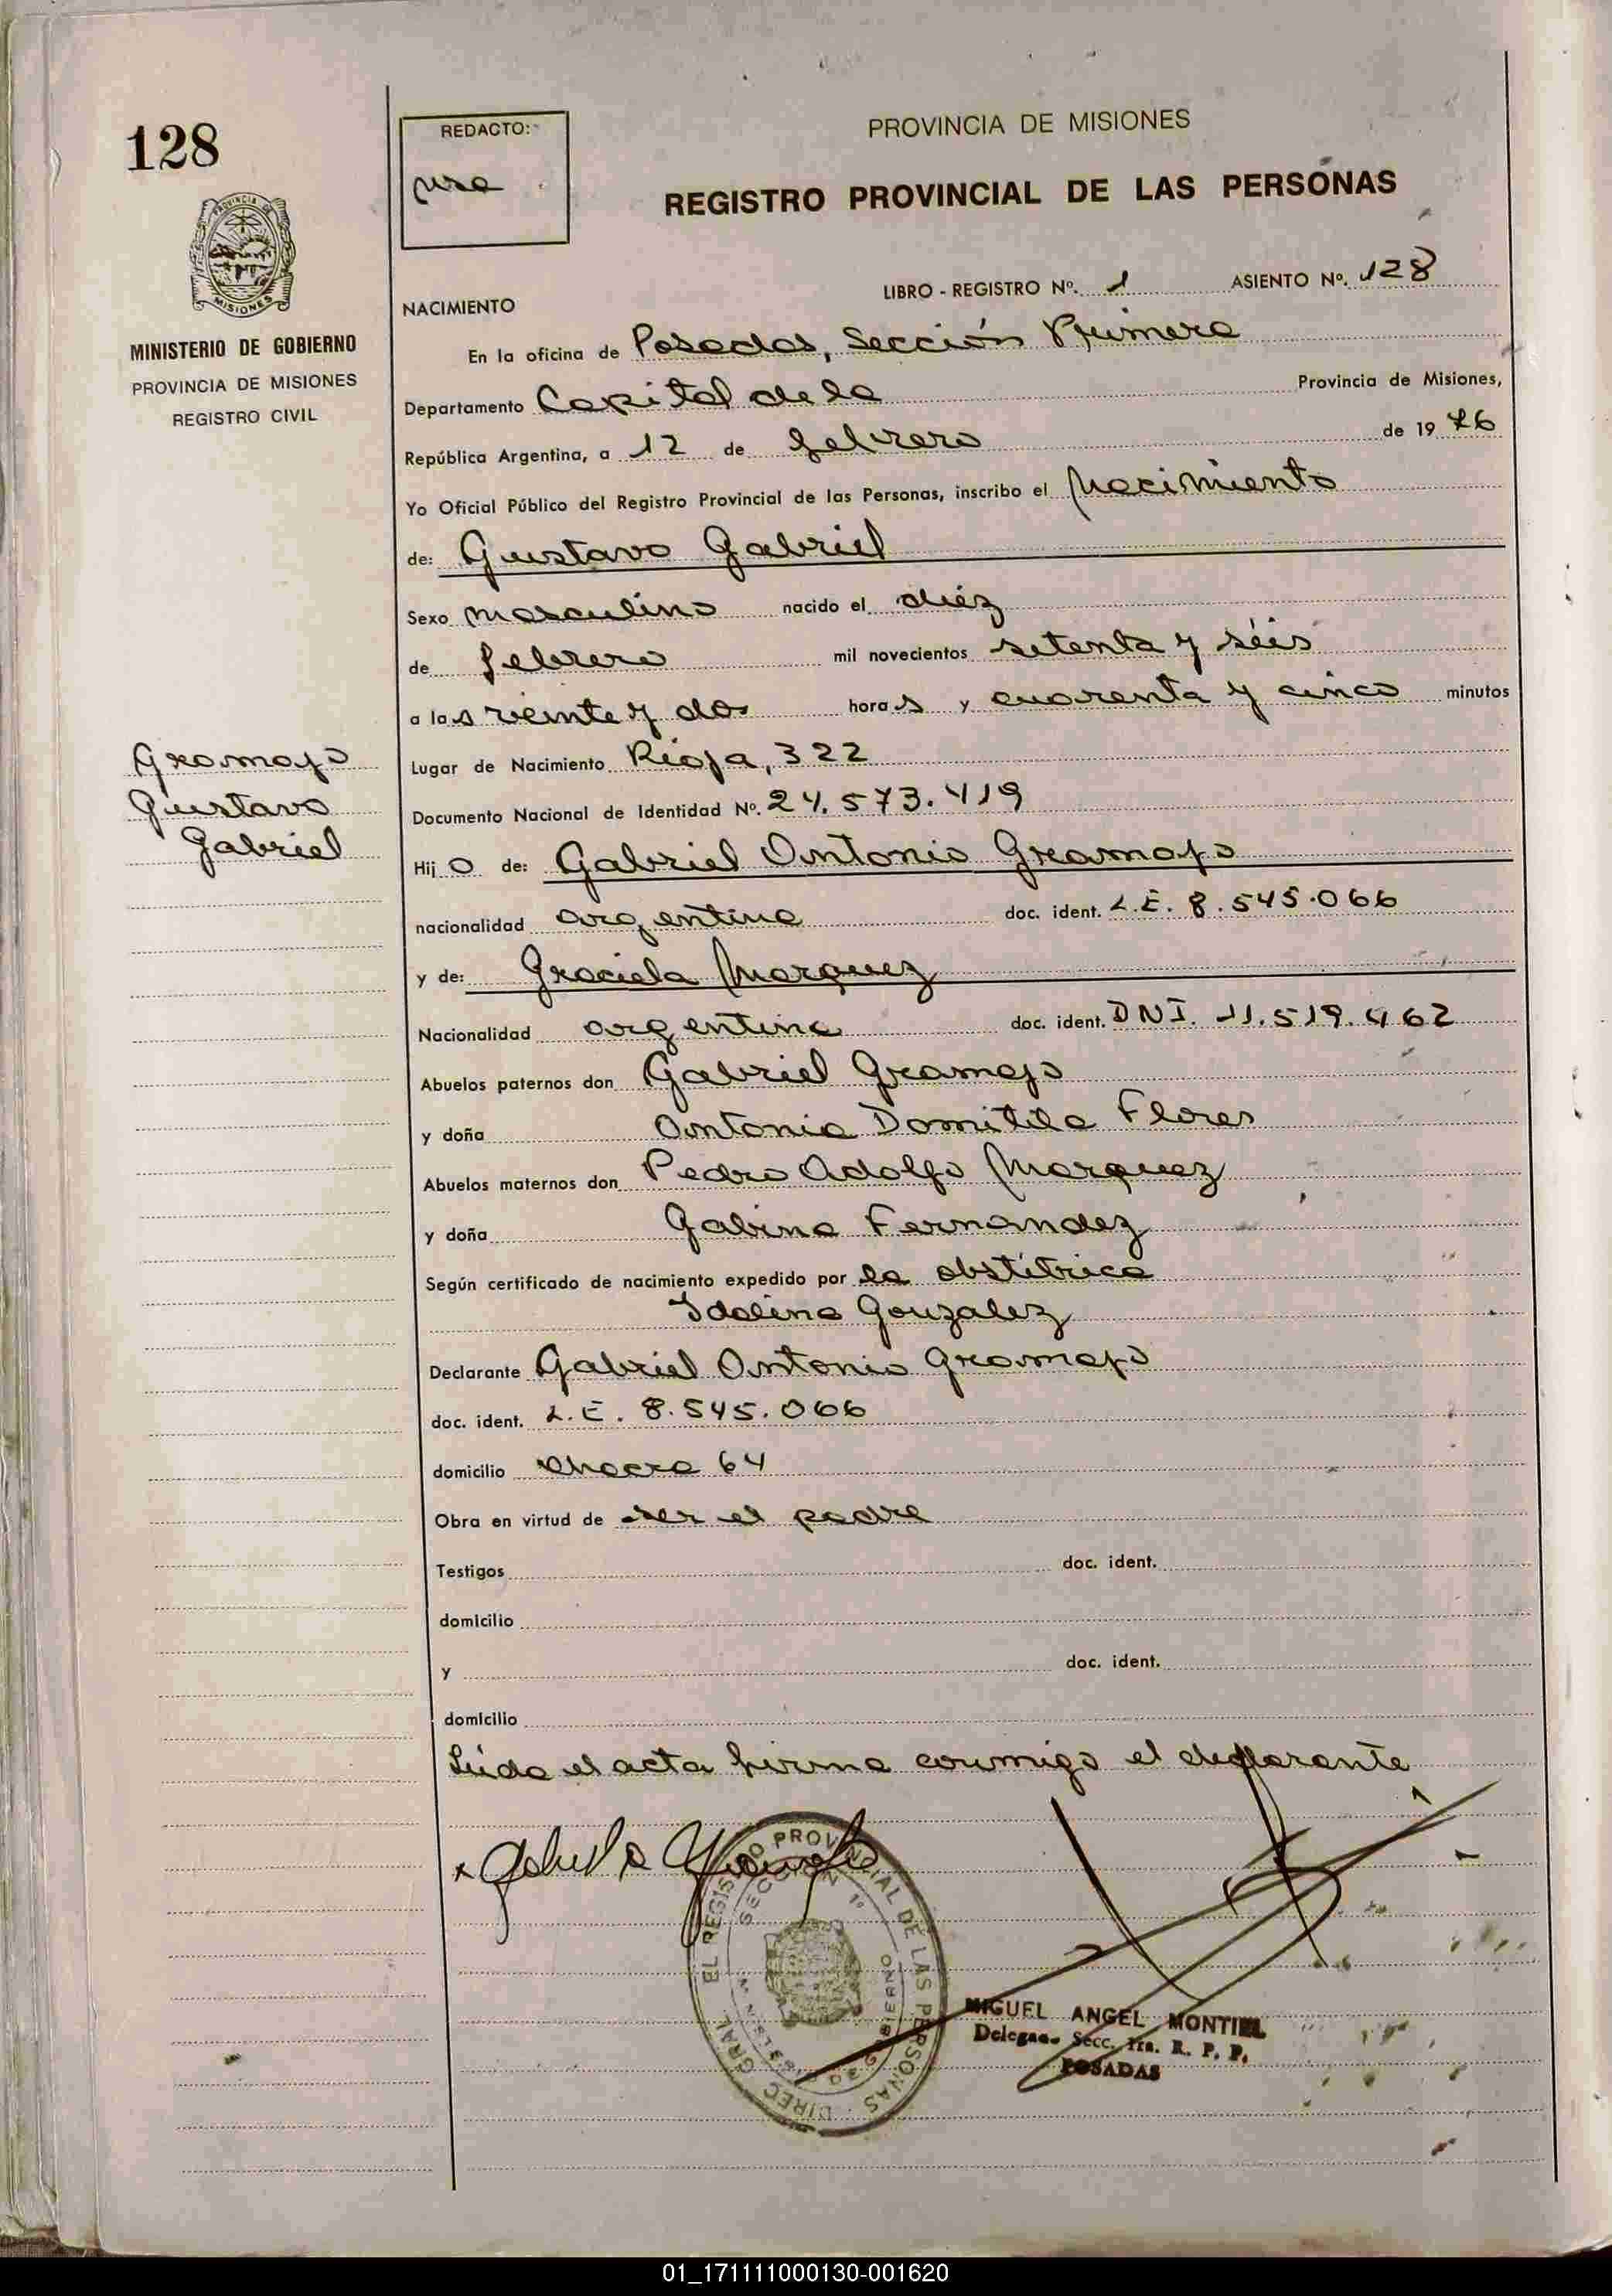 128
PROVINCIA DE MISIONES
MINISTERIO DE GOBIERNO
PROVINCIA DE MISIONES
REGISTRO CIVIL
Gramajo
Gustavo
Gabriel
REDACTO:
PROVINCIA DE MISIONES
REGISTRO PROVINCIAL DE LAS PERSONAS
LIBRO - REGISTRO Nº. 1 ASIENTO Nº. 128
NACIMIENTO
En la oficina de Posadas, Sección Primera
Departamento Capital de la Provincia de Misiones,
República Argentina, a 12 de febrero de 1976
Yo Oficial Público del Registro Provincial de las Personas, inscribo el Nacimiento
de: Gustavo Gabriel
Sexo masculino nacido el diéz
de febrero mil novecientos setenta y séis
a las veinte y dos horas y cuarenta y cinco minutos
Lugar de Nacimiento Rioja, 322
Documento Nacional de Identidad Nº. 24.573.419
Hijo de: Gabriel Antonio Gramajo
nacionalidad argentina doc. ident. L.E. 8.545.066
y de: Graciela Marquez
Nacionalidad argentina doc. ident. DNI. 11.519.462
Abuelos paternos don Gabriel Gramajo
y doña Antonia Domitila Flores
Abuelos maternos don Pedro Adolfo Marquez
y doña Gabina Fernandez
Según certificado de nacimiento expedido por la obstétrica
Idalina Gonzalez
Declarante Gabriel Antonio Gramajo
doc. ident. L.E. 8.545.066
domicilio chacra 64
Obra en virtud de ser el padre
Testigos doc. ident.
domicilio
y doc. ident.
domicilio
Leída el acta firma conmigo el declarante
EL REGISTRO PROVINCIAL DE LAS PERSONAS
DIREC. GRAL.
SECCION 1º
MIGUEL ANGEL MONTIEL
Delegado Secc. 1ra. R. P. P.
POSADAS
01_171111000130-001620